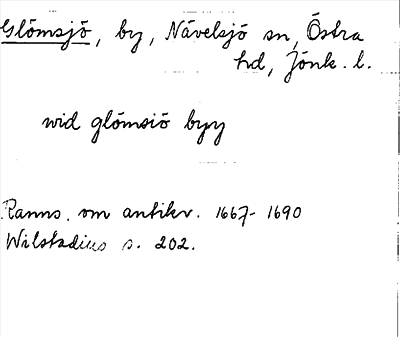 Glömsjö, by, Nävelsjö sn, Östra
hd, Jönk. l.
wid glömsiö byy
Ranns. om antikv. 1667-1690
Wilstadius s. 202.